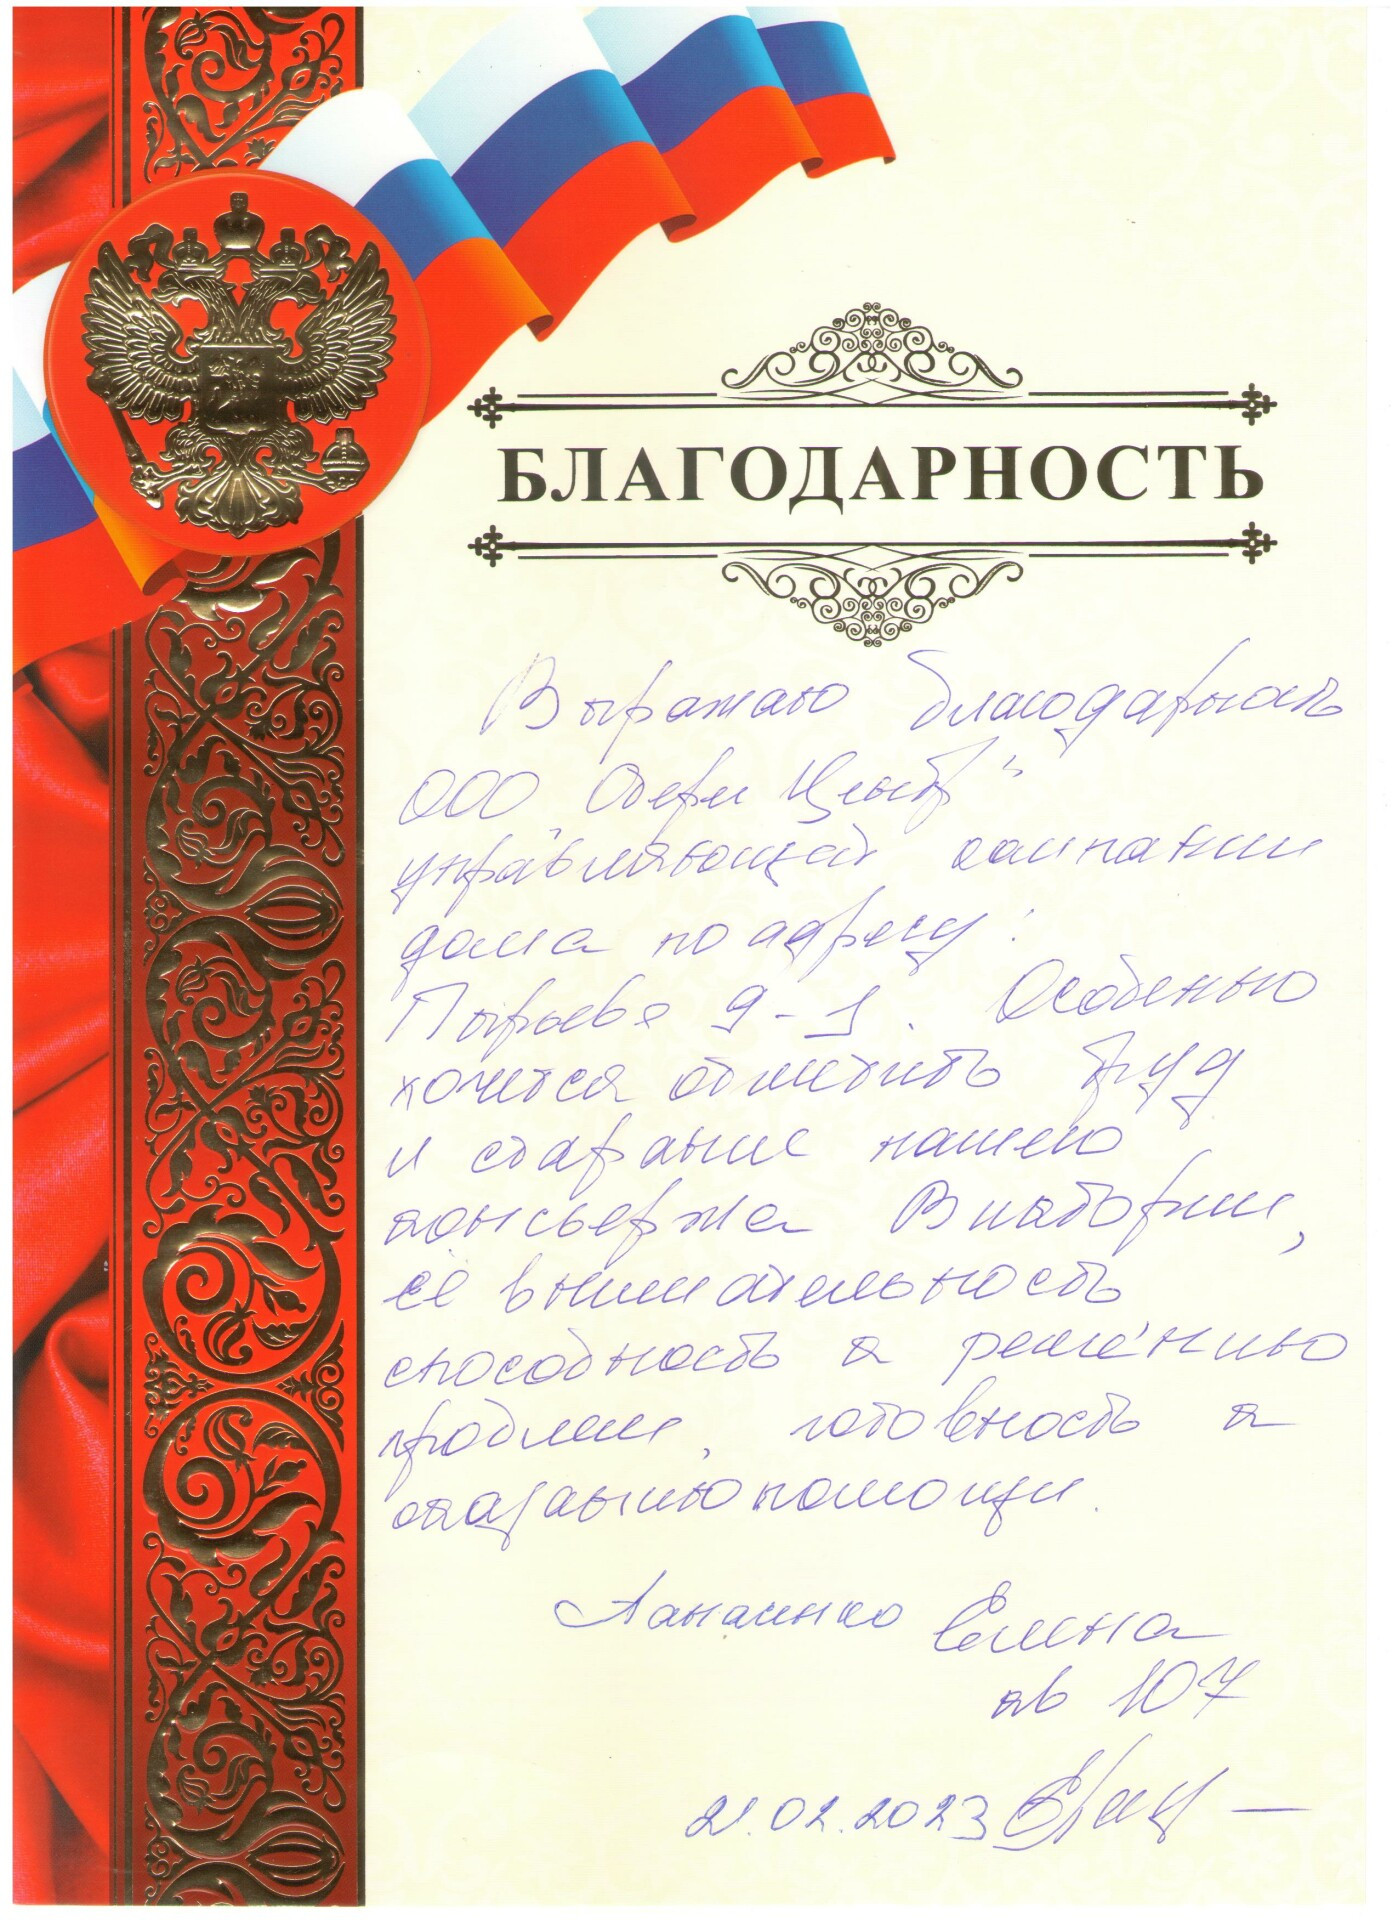 БЛАГОДАРНОСТЬ
Выражаю благодарность
ООО
управляющей компании
дома по адресу:
Пырьева 9-1. Особенно
хочется отметить труд
и старание нашего
консьержа Виктории,
её внимательность
способность к решению
проблем, готовность к
оказанию помощи.
Елена
кв 107
21.02.2023